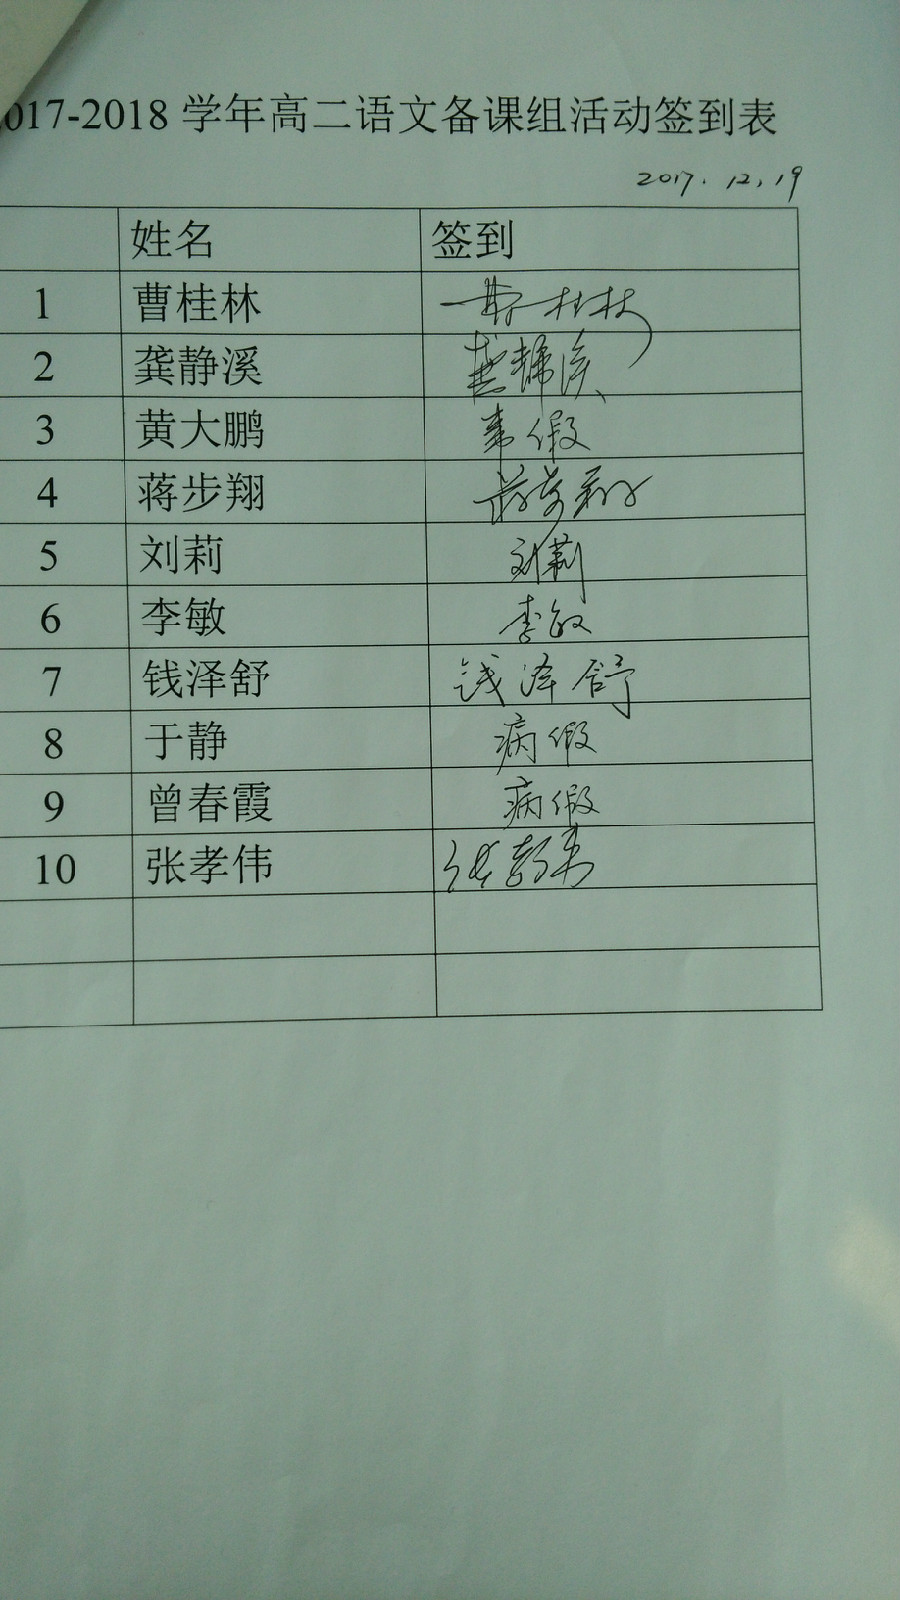 017-2018 学年高二语文备课组活动签到表
2017.12.19
姓名 签到
1 曹桂林 曹桂林
2 龚静溪 龚静溪
3 黄大鹏 事假
4 蒋步翔 蒋步翔
5 刘莉 刘莉
6 李敏 李敏
7 钱泽舒 钱泽舒
8 于静 病假
9 曾春霞 病假
10 张孝伟